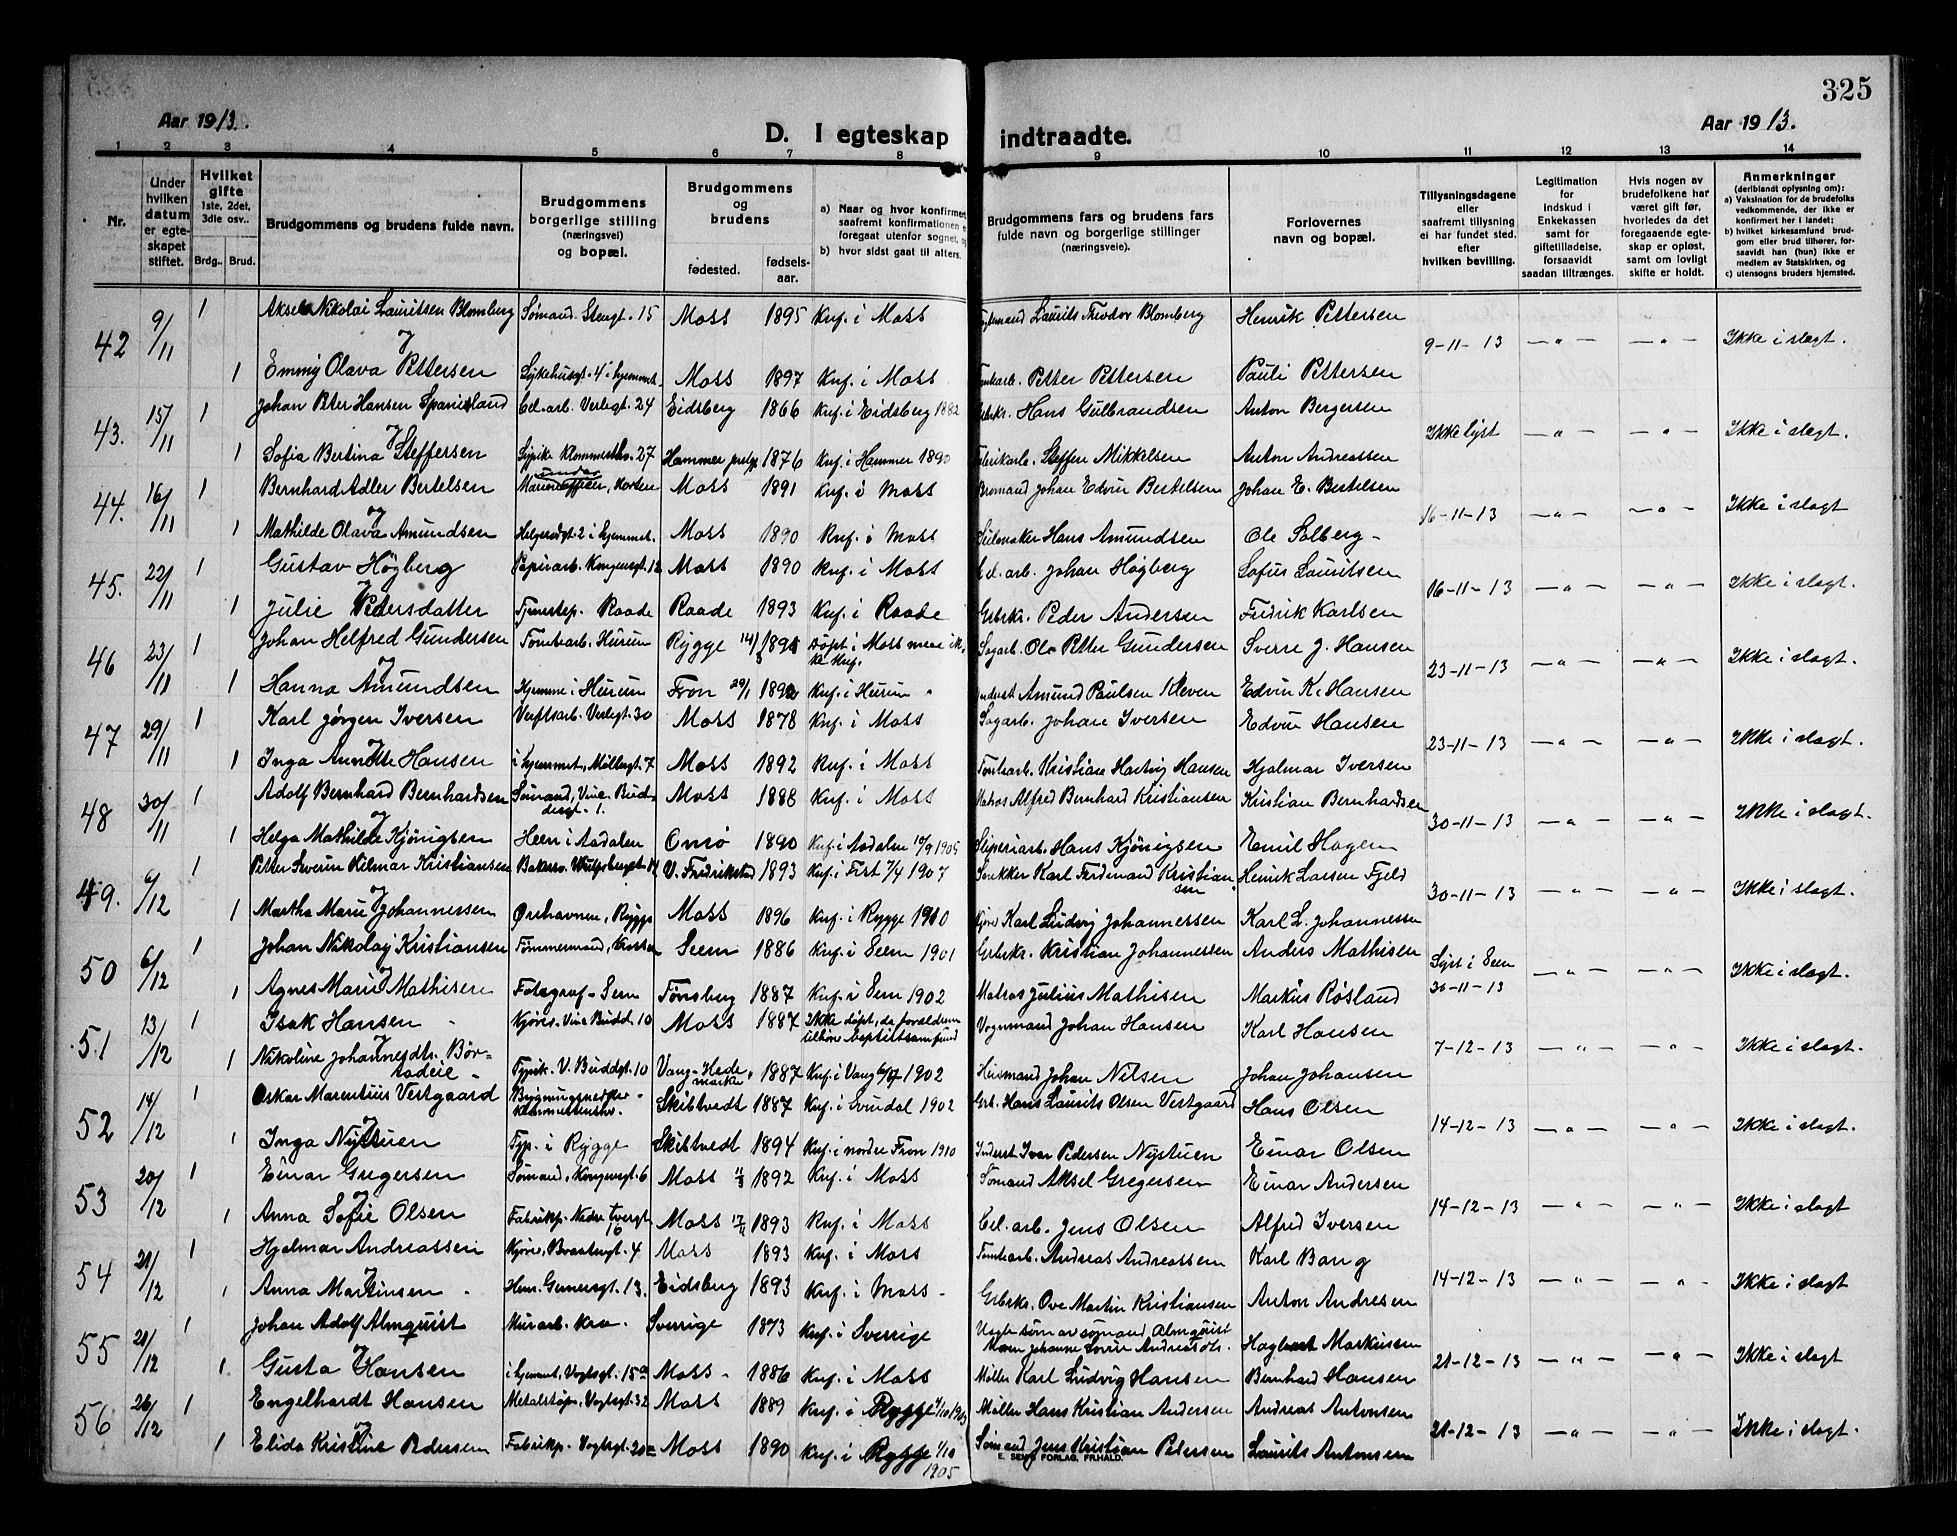 325
Aar 1913.
D. I egteskap indtraadte.
Aar 1913.
1 2 3 4 5 6 7 8 9 10 11 12 13 14
Nr.
Under hvilken datum er egteskapet stiftet.
Hvilket gifte 1ste, 2det, 3die osv..
Brdg.. Brud.
Brudgommens og brudens fulde navn.
Brudgommens borgerlige stilling (næringsvei) og bopæl.
Brudgommens og brudens
fødested.
fødsels-aar.
a) Naar og hvor konfirmert, saafremt konfirmationen er foregaat utenfor sognet, og
b) hvor sidst gaat til alters.
Brudgommens fars og brudens fars fulde navn og borgerlige stillinger (næringsveie).
Forlovernes navn og bopæl.
Tillysningsdagene eller saafremt tillysning ei har fundet sted, efter hvilken bevilling.
Legitimation for indskud i Enkekassen samt for giftetilladelse, forsaavidt saadan tiltrænges.
Hvis nogen av brudefolkene har været gift før, hvorledes da det foregaaende egteskap er opløst, samt om lovligt skifte er holdt.
Anmerkninger
(deriblandt oplysning om):
a) Vaksination for de brudefolks vedkommende, der ikke er konfirmert her i landet;
b) hvilket kirkesamfund brudgom eller brud tilhører, forsaavidt han (hun) ikke er medlem av Statskirken, og
c) utensogns bruders hjemsted.
42 9/11 1 Aksel Nikolai Lauritsen Blomberg Sømand, Stengt. 15 Moss 1895 Knf. i Moss Laurits Theodor Blomberg Henrik Pettersen 9-11-13 — " — — " — Ikke i slegt.
1 Emmy Olava Pettersen Sykehusgt. 4 i hjemmet. Moss 1897 Knf. i Moss Petter Pettersen Pauli Pettersen
43. 15/11 1 Johan Peter Hansen Spanieland Cel. arb. Verlegt. 24 Eidsberg 1866 Knf. i Eidsberg 1882 Grbrkr. Hans Gulbrandsen Anton Bergersen Ikke lyst — " — — " — Ikke i slegt.
1 Sofia Bertina Steffersen 27 Hammer 1876 Knf. i Hammer 1890 Fabrikarb. Steffen Mikkelsen Anton Andreassen
44. 16/11 1 Bernhard Adler Bertelsen under Marineofficer, Horten Moss 1891 Knf. i Moss Johan Edvin Bertelsen Johan E. Bertelsen 16-11-13 — " — — " — Ikke i slegt
1 Mathilde Olava Amundsen Helgerødgt. 2 i hjemmet. Moss 1890 Knf. i Moss Seilmaker Hans Amundsen Ole Solberg
45. 22/11 1 Gustav Högberg Papirarb. Kongensgt. 12 Moss 1890 Knf. i Moss Cel. arb. Johan Högberg Sofus Lauritsen 16-11-13 — " — — " — Ikke i slegt.
1 Julie Pedersdatter Tjenestep. Raade Raade 1893 Knf. i Raade Grbrkr. Peder Andersen Fredrik Karlsen
46 23/11 1 Johan Helfred Gundersen Tomtearb. Hurum Rygge Døpt i Moss men ikke knf. Sagarb. Ole Petter Gundersen Sverre J. Hansen 23-11-13 — " — — " — Ikke i slegt
1 Hanna Amundsen Hjemme i Hurum Fron 29/1 Knf. i Hurum Inderst Amund Paulsen Kleven Edvin K. Hansen
47 29/11 1 Karl Jørgen Iversen Verftsarb. Verlegt. 30 Moss 1878 Knf. i Moss Sagarb. Johan Iversen Edvin Hansen 23-11-13 — " — — " — Ikke i slegt.
1 Inga Annette Hansen i hjemmet, Møllergt. 7 Moss 1892 Knf. i Moss Tomtearb. Kristian Hartvig Hansen Hjalmar Iversen
48 30/11 1 Adolf Bernhard Bernhardsen Sømand, Vinc. Buddesgt. 1. Moss 1888 Knf. i Moss Matros Alfred Bernhard Kristiansen Kristian Bernhardsen 30-11-13 — " — — " — Ikke i slegt.
1 Helga Mathilde Kjönigsen Heen i Aadalen Onsø 1890 Knf. i Aadalen 10/9 1905 Sliperiarb. Hans Kjönigsen Emil Hagen
49. 6/12 1 Petter Severin Hilmar Kristiansen V. Fredrikstad 1893 Knf. i Frst 7/4 1907 Snekker Karl Ferdinand Kristiansen Henrik Larsen Fjeld 30-11-13 — " — — " — Ikke i slegt.
1 Martha Marie Johannessen Ørehavnen, Rygge Moss 1896 Knf. i Rygge 1910 Kjøre Karl Ludvig Johannessen Karl L. Johannessen
50 6/12 1 Johan Nikolay Kristiansen Tømmermand, Seem 1886 Knf. i Seem 1901 Grbrkr. Kristian Johannessen Anders Mathisen Lyst i Seem 30-11-13 — " — — " — Ikke i slegt.
1 Agnes Marie Mathisen Fotograf - Sem Tønsberg 1887 Knf. i Sem 1902 Matros Julius Mathisen Markus Røsland
51 13/12 1 Isak Hansen Kjøre - Vinc Budd. 10 Moss 1887 Ikke døpt, da forældrene tilhøre baptistsamfund Vognmand Johan Hansen Karl Hansen 7-12-13 — " — — " — Ikke i slegt.
1 Nikoline Johannesdtr. Børstadeie V. Buddgt. 10 Vang - Hedemarken 1887 Knf. i Vang 1902 Johan Nilsen Johan Johansen
52 14/12 1 Oskar Marentius Vestgaard Skibtvedt 1887 Knf. i Svindal 1902 Grb. Hans Laurits Olsen Vestgaard Hans Olsen 14-12-13 — " — — " — Ikke i slegt.
1 Inga Nystuen Typ. i Rygge Skibtvedt 1894 Knf. i nordre Fron 1910 Inderst Iver Pedersen Nystuen Einar Olsen
53 20/12 1 Einar Gregersen Sømand, Kongensgt. 6 Moss 1892 Knf. i Moss Sømand Aksel Gregersen Einar Andersen 14-12-13 — " — — " — Ikke i slegt
1 Anna Sofie Olsen Fabrikp. Nedre Tvergt 16 Moss 1893 Knf. i Moss Cel. arb. Jens Olsen Alfred Iversen
54 21/12 1 Hjalmar Andreassen Kjøre, Braatengt. 4 Moss 1893 Knf. i Moss Tomtearb. Andreas Andreassen Karl Bang 14-12-13 — " — — " — Ikke i slegt
1 Anna Martinsen Henr. Gernersgt. 13. Eidsberg 1893 Knf. i Moss Grbrkr. Ove Martin Kristiansen Anton Andresen
55 21/12 1 Johan Adolf Almquist Murarb. Kra Sverrige 1873 Knf. i Sverrige Uegte søn av sømand Almquist Hagbart Markussen 21-12-13 — " — — " — Ikke i slegt
1 Gusta Hansen i hjemmet, Vogtsgt. 15 a Moss 1886 Knf. i Moss Møller Karl Ludvig Hansen Bernhard Hansen
56 26/12 1 Engelhardt Hansen Metalstøper, Vogtsgt. 32 Moss 1889 Knf. i Rygge 1/10 1903 Møller Hans Kristian Andersen Andreas Antonsen 21-12-13 — " — — " — Ikke i slegt.
1 Elida Kristine Pedersen Fabrikp. Vogtsgt. Moss 1890 Knf. i Rygge 1/10 1905 Sømand Jens Kristian Petersen Laurits Antonsen
E. SEMS FORLAG, FR.HALD.